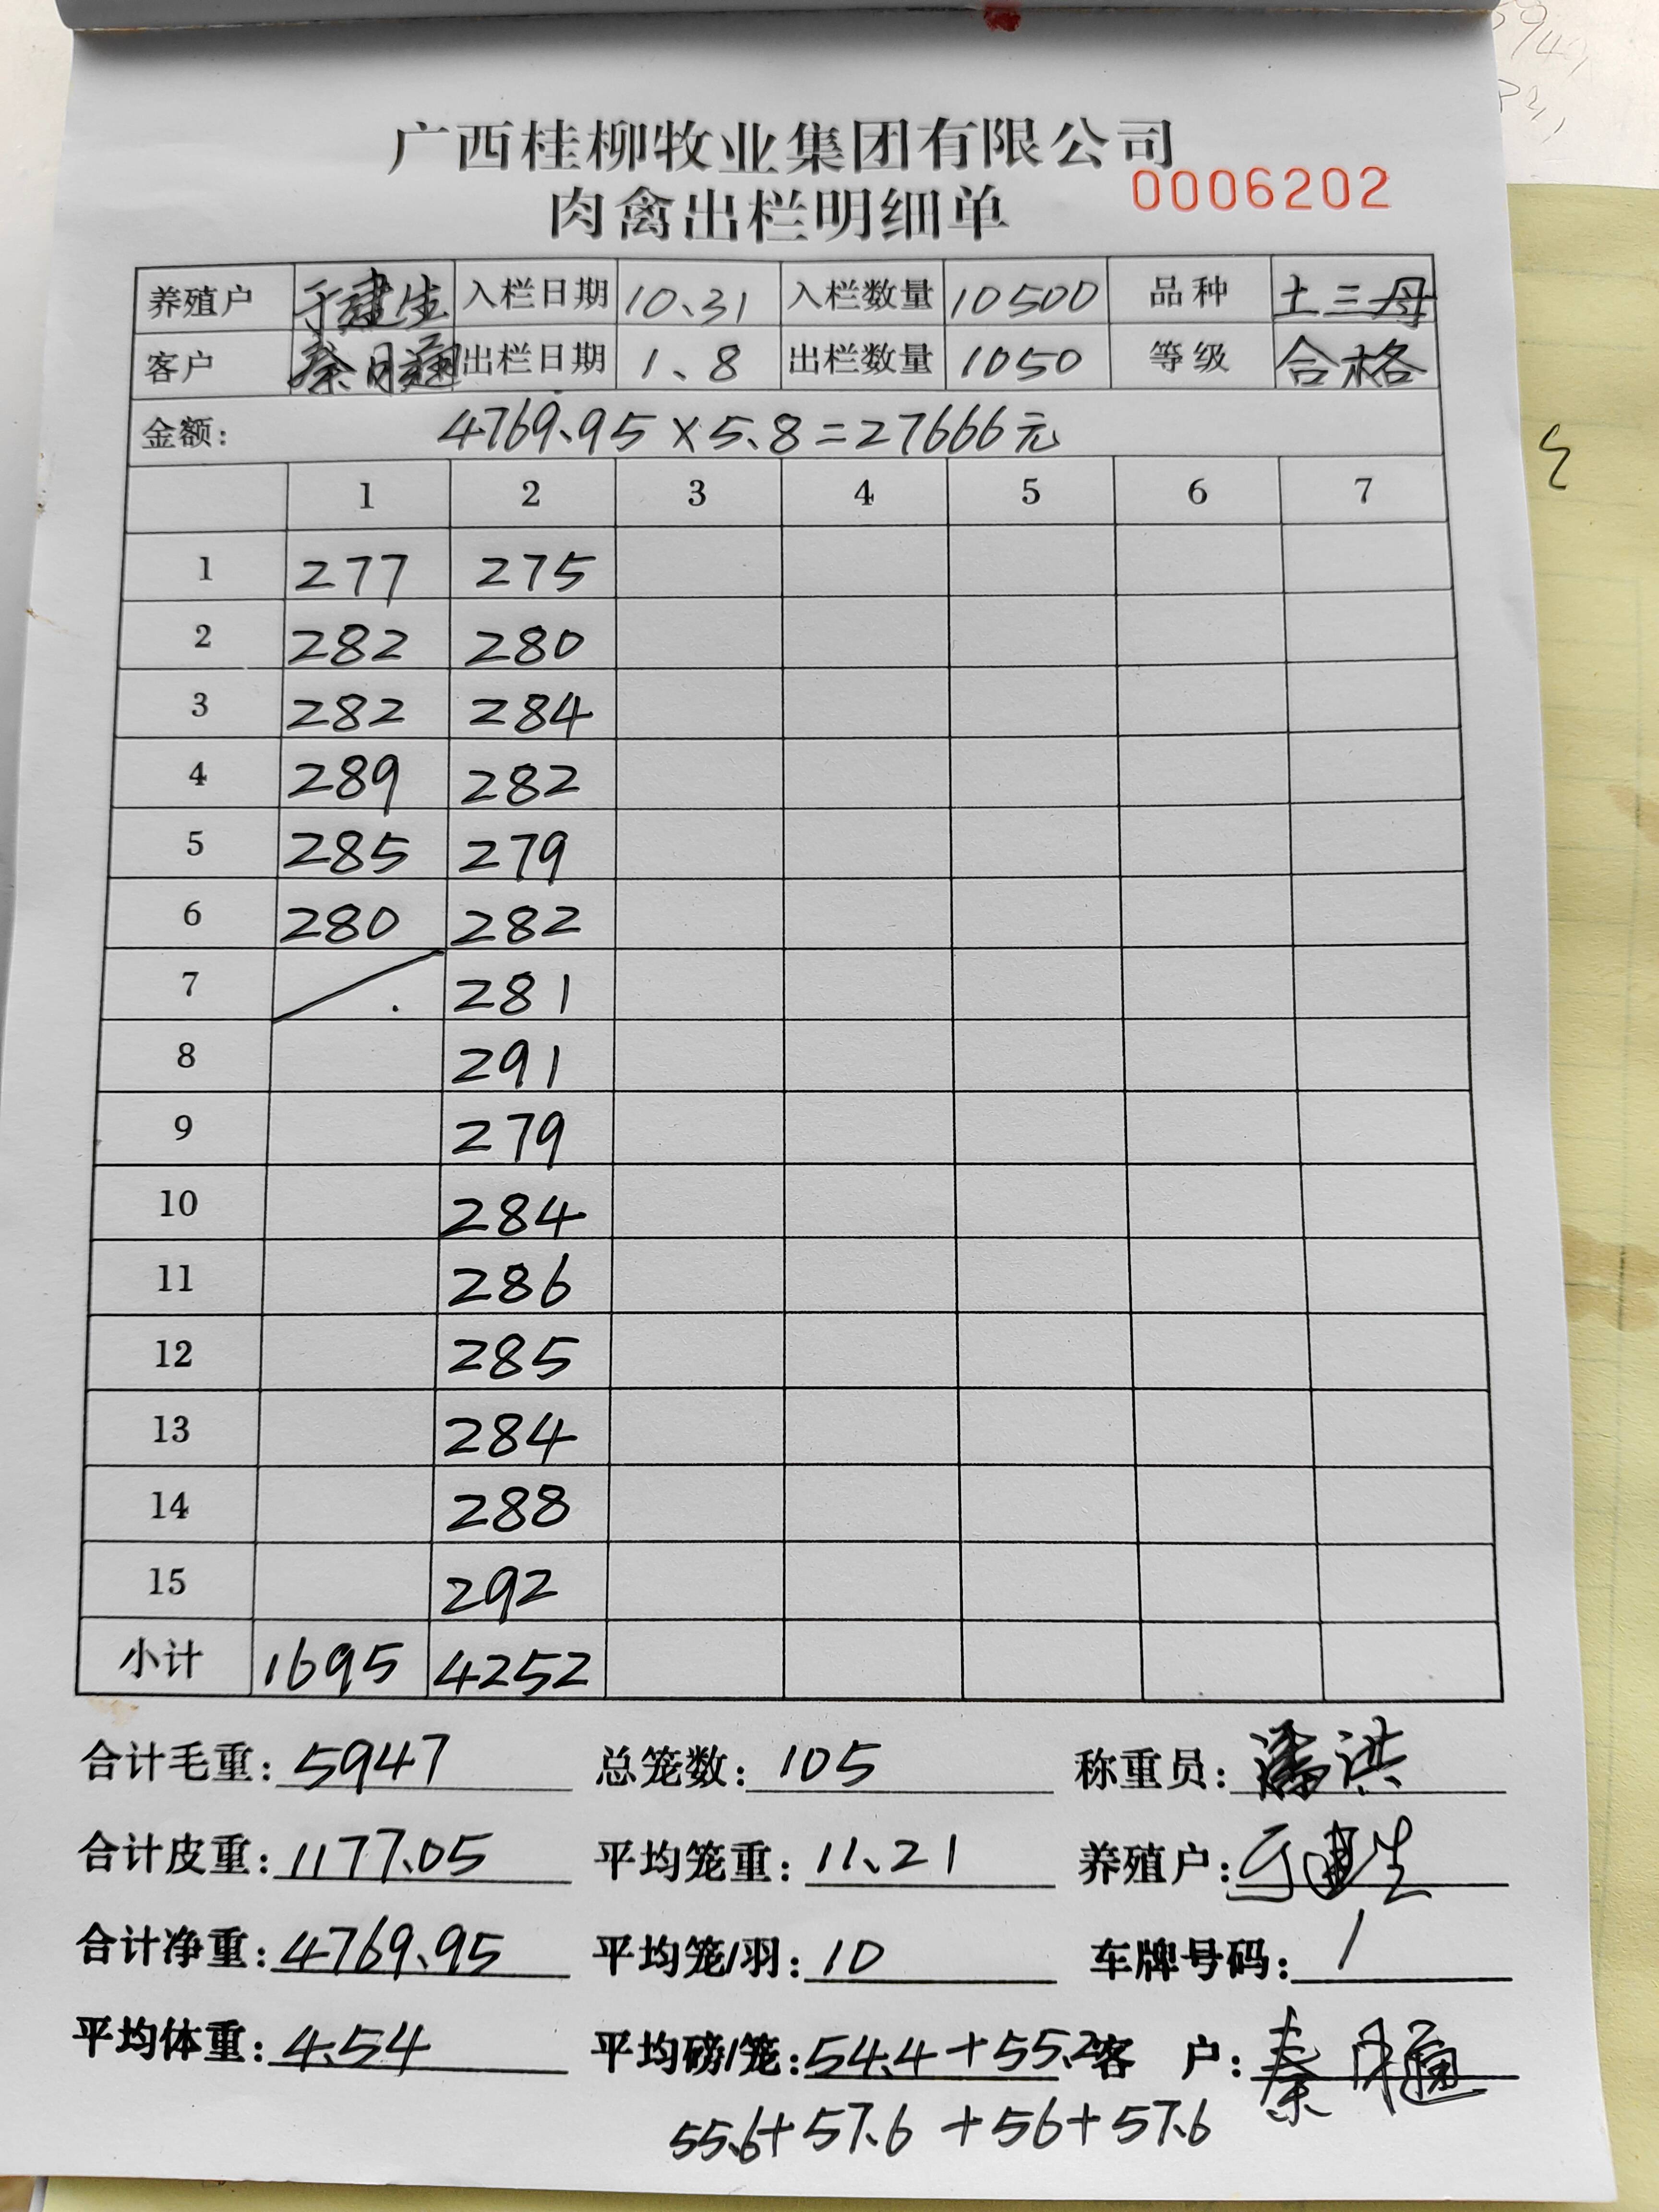 广西桂柳牧业集团有限公司
肉禽出栏明细单 0006202
养殖户 于建生 入栏日期 10、31 入栏数量 10500 品种 土三母
客户 秦月 出栏日期 1、8 出栏数量 1050 等级 合格
金额: 4769.95×5.8=27666元
1 2 3 4 5 6 7
1 277 275
2 282 280
3 282 284
4 289 282
5 285 279
6 280 282
7 281
8 291
9 279
10 284
11 286
12 285
13 284
14 288
15 292
小计 1695 4252
合计毛重: 5947 总笼数: 105 称重员: 潘洪
合计皮重: 1177.05 平均笼重: 11.21 养殖户: 于建生
合计净重: 4769.95 平均笼/羽: 10 车牌号码: /
平均体重: 4.54 平均磅/笼: 54.4+55.2 客 户: 秦月
55.6+57.6+56+57.6